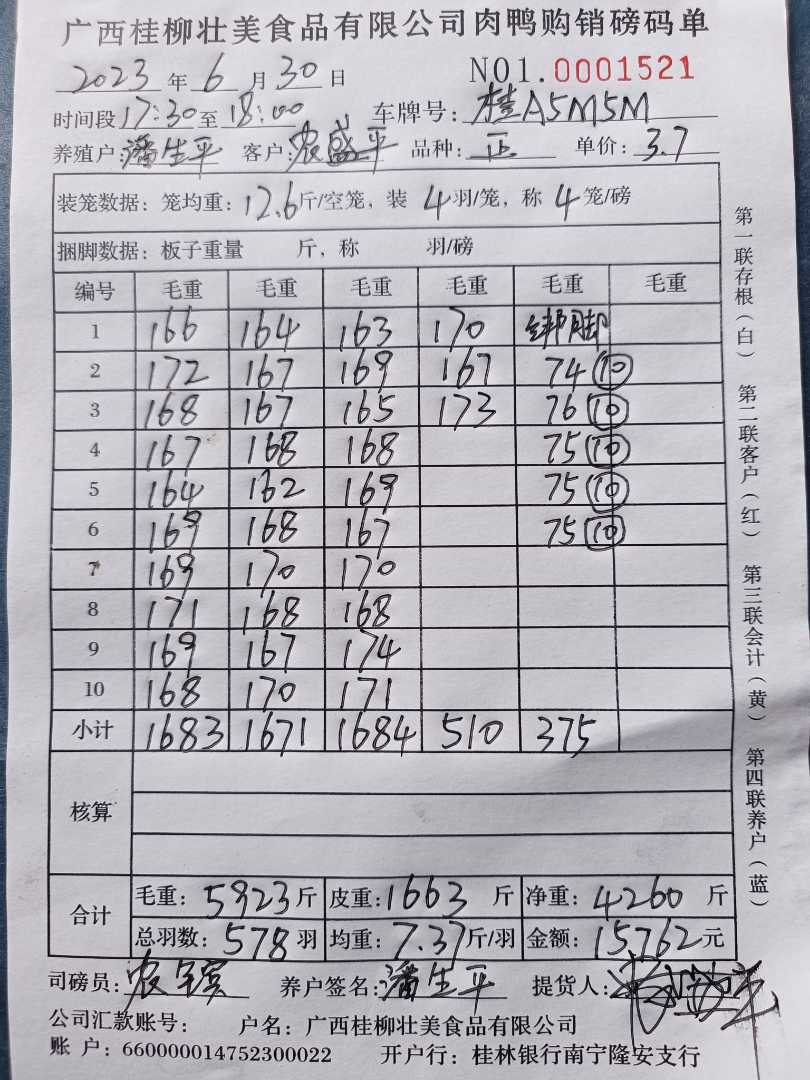 广西桂柳壮美食品有限公司肉鸭购销磅码单
2023年6月30日 NO1.0001521
时间段17:30至18:00 车牌号:桂A5M5M
养殖户:潘生平 客户:农盛平 品种:正 单价:3.7
装笼数据:笼均重:12.6斤/空笼,装4羽/笼,称4笼/磅
捆脚数据:板子重量 斤,称 羽/磅
编号 毛重 毛重 毛重 毛重 毛重 毛重
1 166 164 163 170 全绑脚
2 172 167 169 167 74⑩
3 168 167 165 173 76⑩
4 167 168 168 75⑩
5 164 162 169 75⑩
6 169 168 167 75⑩
7 169 170 170
8 171 168 168
9 169 167 174
10 168 170 171
小计 1683 1671 1684 510 375
核算
合计 毛重:5923斤 皮重:1663斤 净重:4260斤
总羽数:578羽 均重:7.37斤/羽 金额:15762元
司磅员:农宇宾 养户签名:潘生平 提货人:
公司汇款账号: 户名:广西桂柳壮美食品有限公司
账 户:660000014752300022 开户行:桂林银行南宁隆安支行
第一联存根(白) 第二联客户(红) 第三联会计(黄) 第四联养户(蓝)